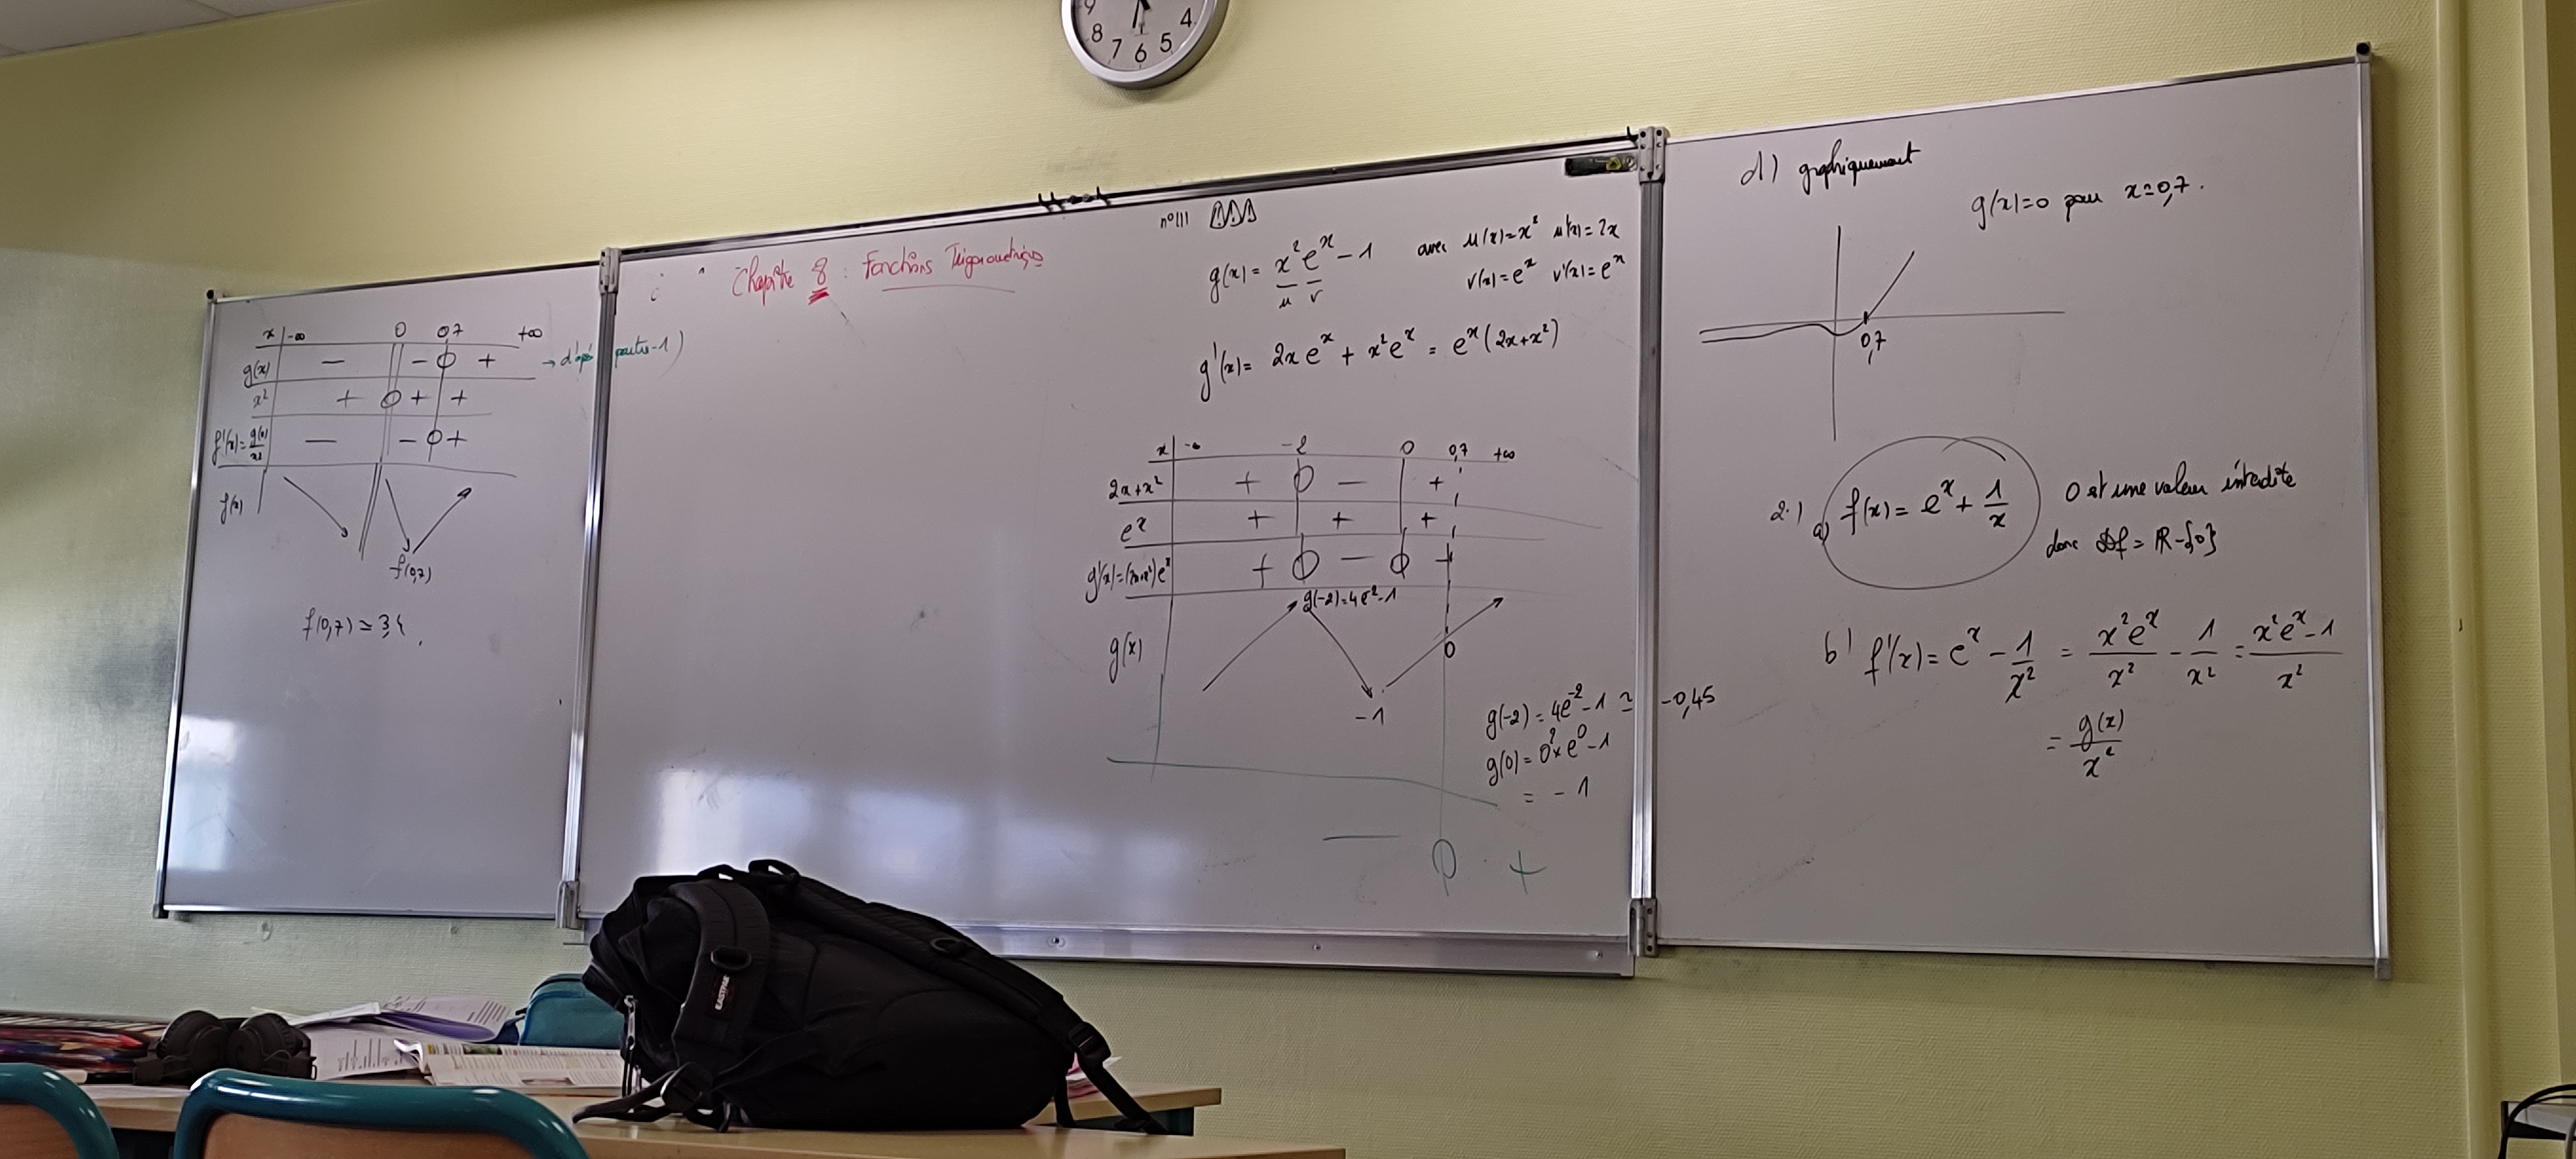 9
8
7
6
5
4
x -∞ 0 0,7 +∞
g(x) - - 0 +
x² + 0 + +
f'(x) = g(x)/x² - - 0 +
f(x)
f(0,7)
f(0,7) ≃ 3,4
→ d'après partie 1)
Chapitre 8 : Fonctions Trigonométriques
n°111
g(x) = x²eˣ - 1 avec u(x) = x² u'(x) = 2x
u v v(x) = eˣ v'(x) = eˣ
g'(x) = 2x eˣ + x²eˣ = eˣ(2x+x²)
x -∞ -2 0 0,7 +∞
2x+x² + 0 - +
eˣ + + +
g'(x) = (2x+x²)eˣ + 0 - 0 +
g(-2) = 4e⁻² - 1
g(x) 0
-1
g(-2) = 4e⁻² - 1 ≃ -0,45
g(0) = 0² × e⁰ - 1
= - 1
- 0 +
d) graphiquement
g(x) = 0 pour x ≃ 0,7.
0,7
2.) a) f(x) = eˣ + 1/x 0 est une valeur interdite
donc Df = ℝ - {0}
b) f'(x) = eˣ - 1/x² = x²eˣ/x² - 1/x² = x²eˣ - 1/x²
= g(x)/x²
EASTPAK